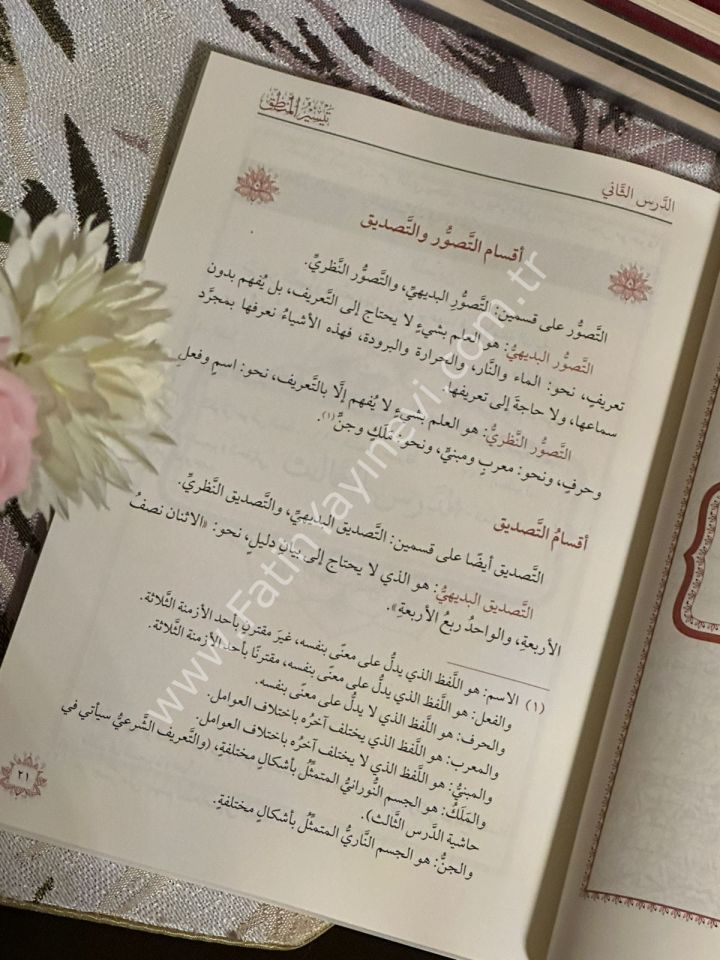 تيسير المنطق
الدَّرس الثَّاني
أقسام التَّصوُّر والتَّصديق
التَّصوُّر على قسمين: التَّصوُّر البديهيِّ، والتَّصوُّر النَّظريِّ.
التَّصوُّر البديهيُّ: هو العلم بشيءٍ لا يحتاج إلى التَّعريف، بل يُفهم بدون
تعريفٍ، نحو: الماء والنَّار، والحرارة والبرودة، فهذه الأشياءُ نعرفها بمجرَّد
سماعها، ولا حاجةَ إلى تعريفها.
التَّصوُّر النَّظريُّ: هو العلم بشيءٍ لا يُفهم إلَّا بالتَّعريف، نحو: اسمٍ وفعلٍ
وحرفٍ، ونحو: معربٍ ومبنيٍّ، ونحو: مَلَك وجنٍّ(١).
أقسامُ التَّصديق
التَّصديق أيضًا على قسمين: التَّصديق البديهيِّ، والتَّصديق النَّظريِّ.
التَّصديق البديهيُّ: هو الذي لا يحتاج إلى بيانِ دليلٍ، نحو: «الاثنان نصفُ
الأربعةِ، والواحدُ ربعُ الأربعةِ».
(١) الاسم: هو اللَّفظ الذي يدلُّ على معنًى بنفسه، غيرَ مقترنٍ بأحد الأزمنة الثَّلاثة.
والفعل: هو اللَّفظ الذي يدلُّ على معنًى بنفسه، مقترنًا بأحد الأزمنة الثَّلاثة.
والحرف: هو اللَّفظ الذي لا يدلُّ على معنًى بنفسه.
والمعرب: هو اللَّفظ الذي يختلف آخرُه باختلاف العوامل.
والمبنيُّ: هو اللَّفظ الذي لا يختلف آخرُه باختلاف العوامل.
والمَلَكُ: هو الجسم النُّورانيُّ المتمثِّلُ بأشكالٍ مختلفةٍ، (والتَّعريف الشَّرعيُّ سيأتي في
حاشية الدَّرس الثَّالث).
والجنُّ: هو الجسم النَّاريُّ المتمثِّلُ بأشكالٍ مختلفةٍ.
٢١
www.FatihYayinevi.com.tr